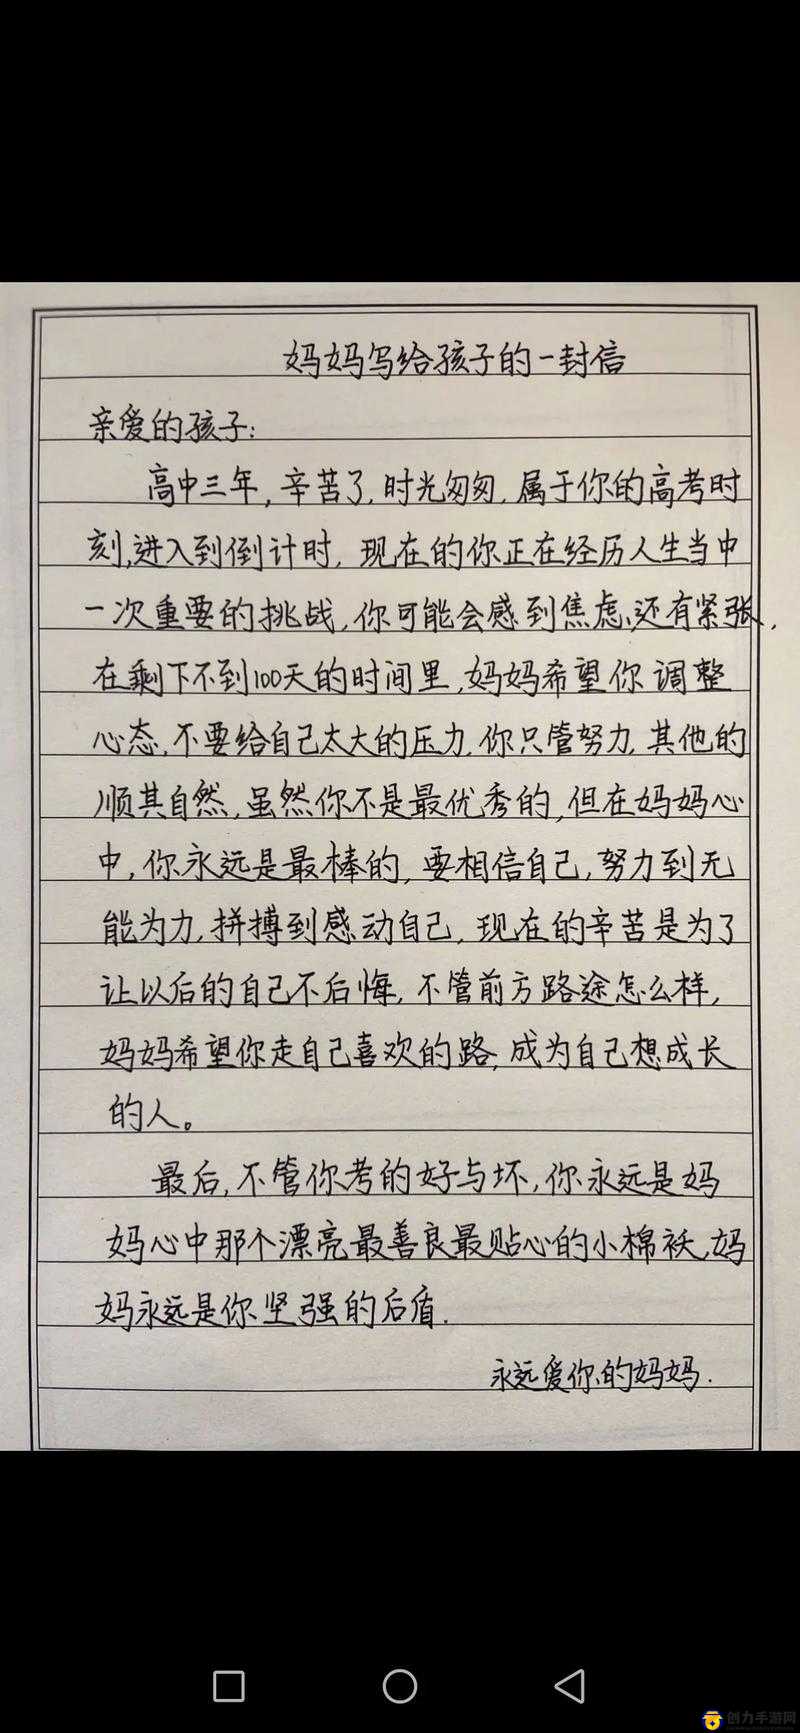 妈妈写给孩子的一封信
亲爱的孩子:
高中三年,辛苦了,时光匆匆,属于你的高考时
刻,进入到倒计时,现在的你正在经历人生当中
一次重要的挑战,你可能会感到焦虑,还有紧张,
在剩下不到100天的时间里,妈妈希望你调整
心态,不要给自己太大的压力,你只管努力,其他的
顺其自然,虽然你不是最优秀的,但在妈妈心
中,你永远是最棒的,要相信自己,努力到无
能为力,拼搏到感动自己,现在的辛苦是为了
让以后的自己不后悔,不管前方路途怎么样,
妈妈希望你走自己喜欢的路,成为自己想成长
的人。
最后,不管你考的好与坏,你永远是妈
妈心中那个漂亮最善良最贴心的小棉袄,妈
妈永远是你坚强的后盾.
永远爱你的妈妈.
创力手游网